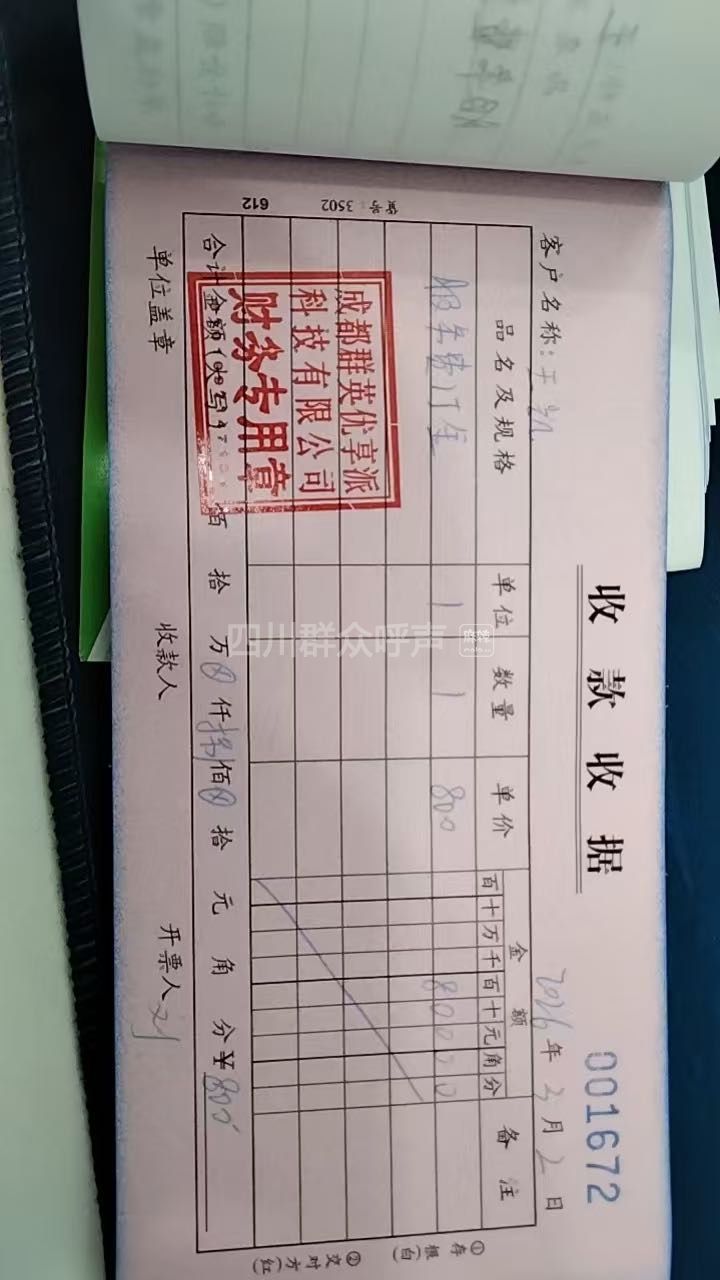 收款收据
001672
客户名称:王凯
2026年3月2日
品名及规格 单位 数量 单价 金额 备注
百十万千百十元角分
服务费订金 1 1 800 80000
合计金额(大写) 佰 拾 万 0 仟 捌 佰 0 拾 元 角 分 ¥800
单位盖章 收款人 开票人 刘
成都群英优享派
科技有限公司
财务专用章
货号:3502
612
①存根(白)
②交对方(红)
四川群众呼声